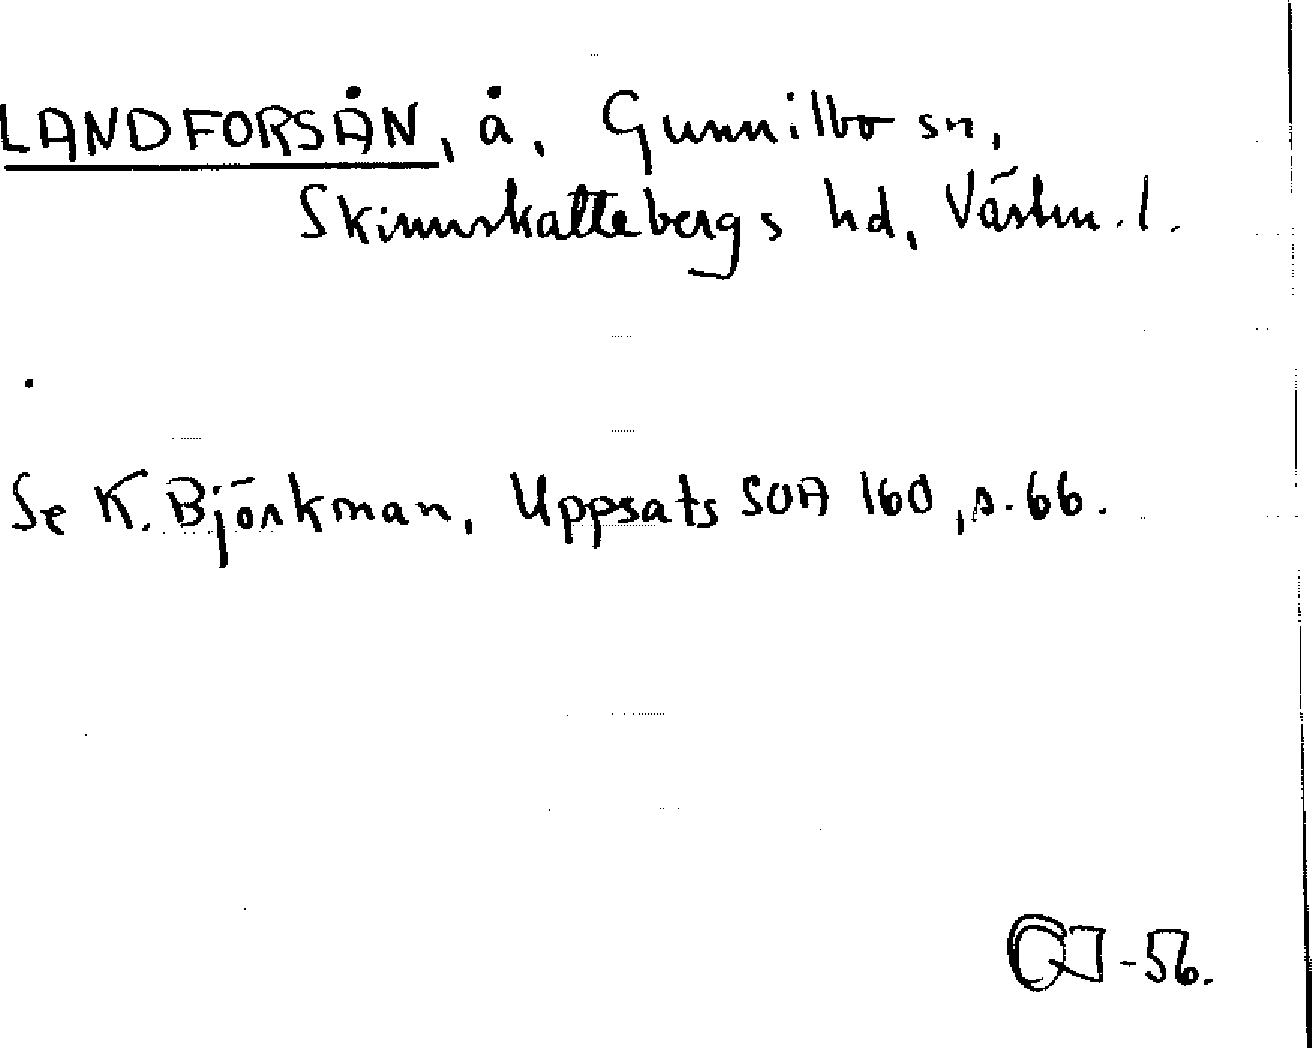 LANDFORSÅN, å, Gunnilbo sn,
Skinnskattebergs hd, Västm. l.
Se K. Björkman, Uppsats SOA 160, s. 66.
-56.